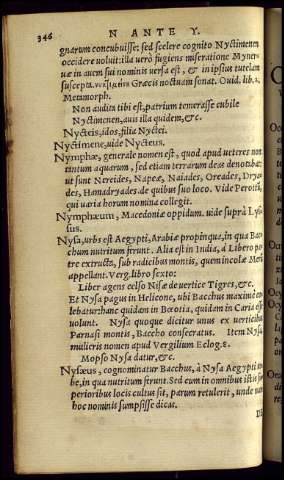 346 N ANTE Y.
gnarum concubuisse: sed scelere cognito Nyctimenen
occidere voluit: illa verò fugiens miseratione Myner-
uæ in auem sui nominis versa est, & in ipsius tutelam
suscepta. Græcis noctuam sonat. Ouid. lib. 2.
Metamorph.
Non audita tibi est, patrium temerasse cubile
Nyctimenen, auis illa quidem, &c.
Nycteis, idos, filia Nyctei.
Nyctimene, uide Nycteus.
Nymphæ, generale nomen est, quod apud ueteres non
tantum aquarum, sed etiam terrarum deas denotabat
ut sunt Nereides, Napeæ, Naiades, Oreades, Drya-
des, Hamadryades de quibus suo loco. Vide Perottū,
qui uaria horum nomina collegit.
Nymphæum, Macedoniæ oppidum. uide suprà Lys-
sus.
Nysa, urbs est Aegypti, Arabiæ propinqua, in qua Bac-
chum nutritum ferunt. Alia est in India, à Libero pa-
tre extructa, sub radicibus montis, quem incolæ Meri
appellant. Verg. libro sexto:
Liber agens celso Nisæ de uertice Tigres, &c.
Et Nysa pagus in Helicone, ubi Bacchus maximè co-
lebatur: hanc quidam in Bœotia, quidam in Caria esse
uolunt. Nysa quoque dicitur unus ex uerticibus
Parnasi montis, Baccho consecratus. Item Nysa
mulieris nomen apud Vergilium Eclog. 8.
Mopso Nysa datur, &c.
Nysæus, cognominatur Bacchus, à Nysa Aegypti ur-
be, in qua nutritum ferunt. Sed cum in omnibus istis su-
perioribus locis cultus sit, parum retulerit, unde
hoc nominis sumpsisse dicas.